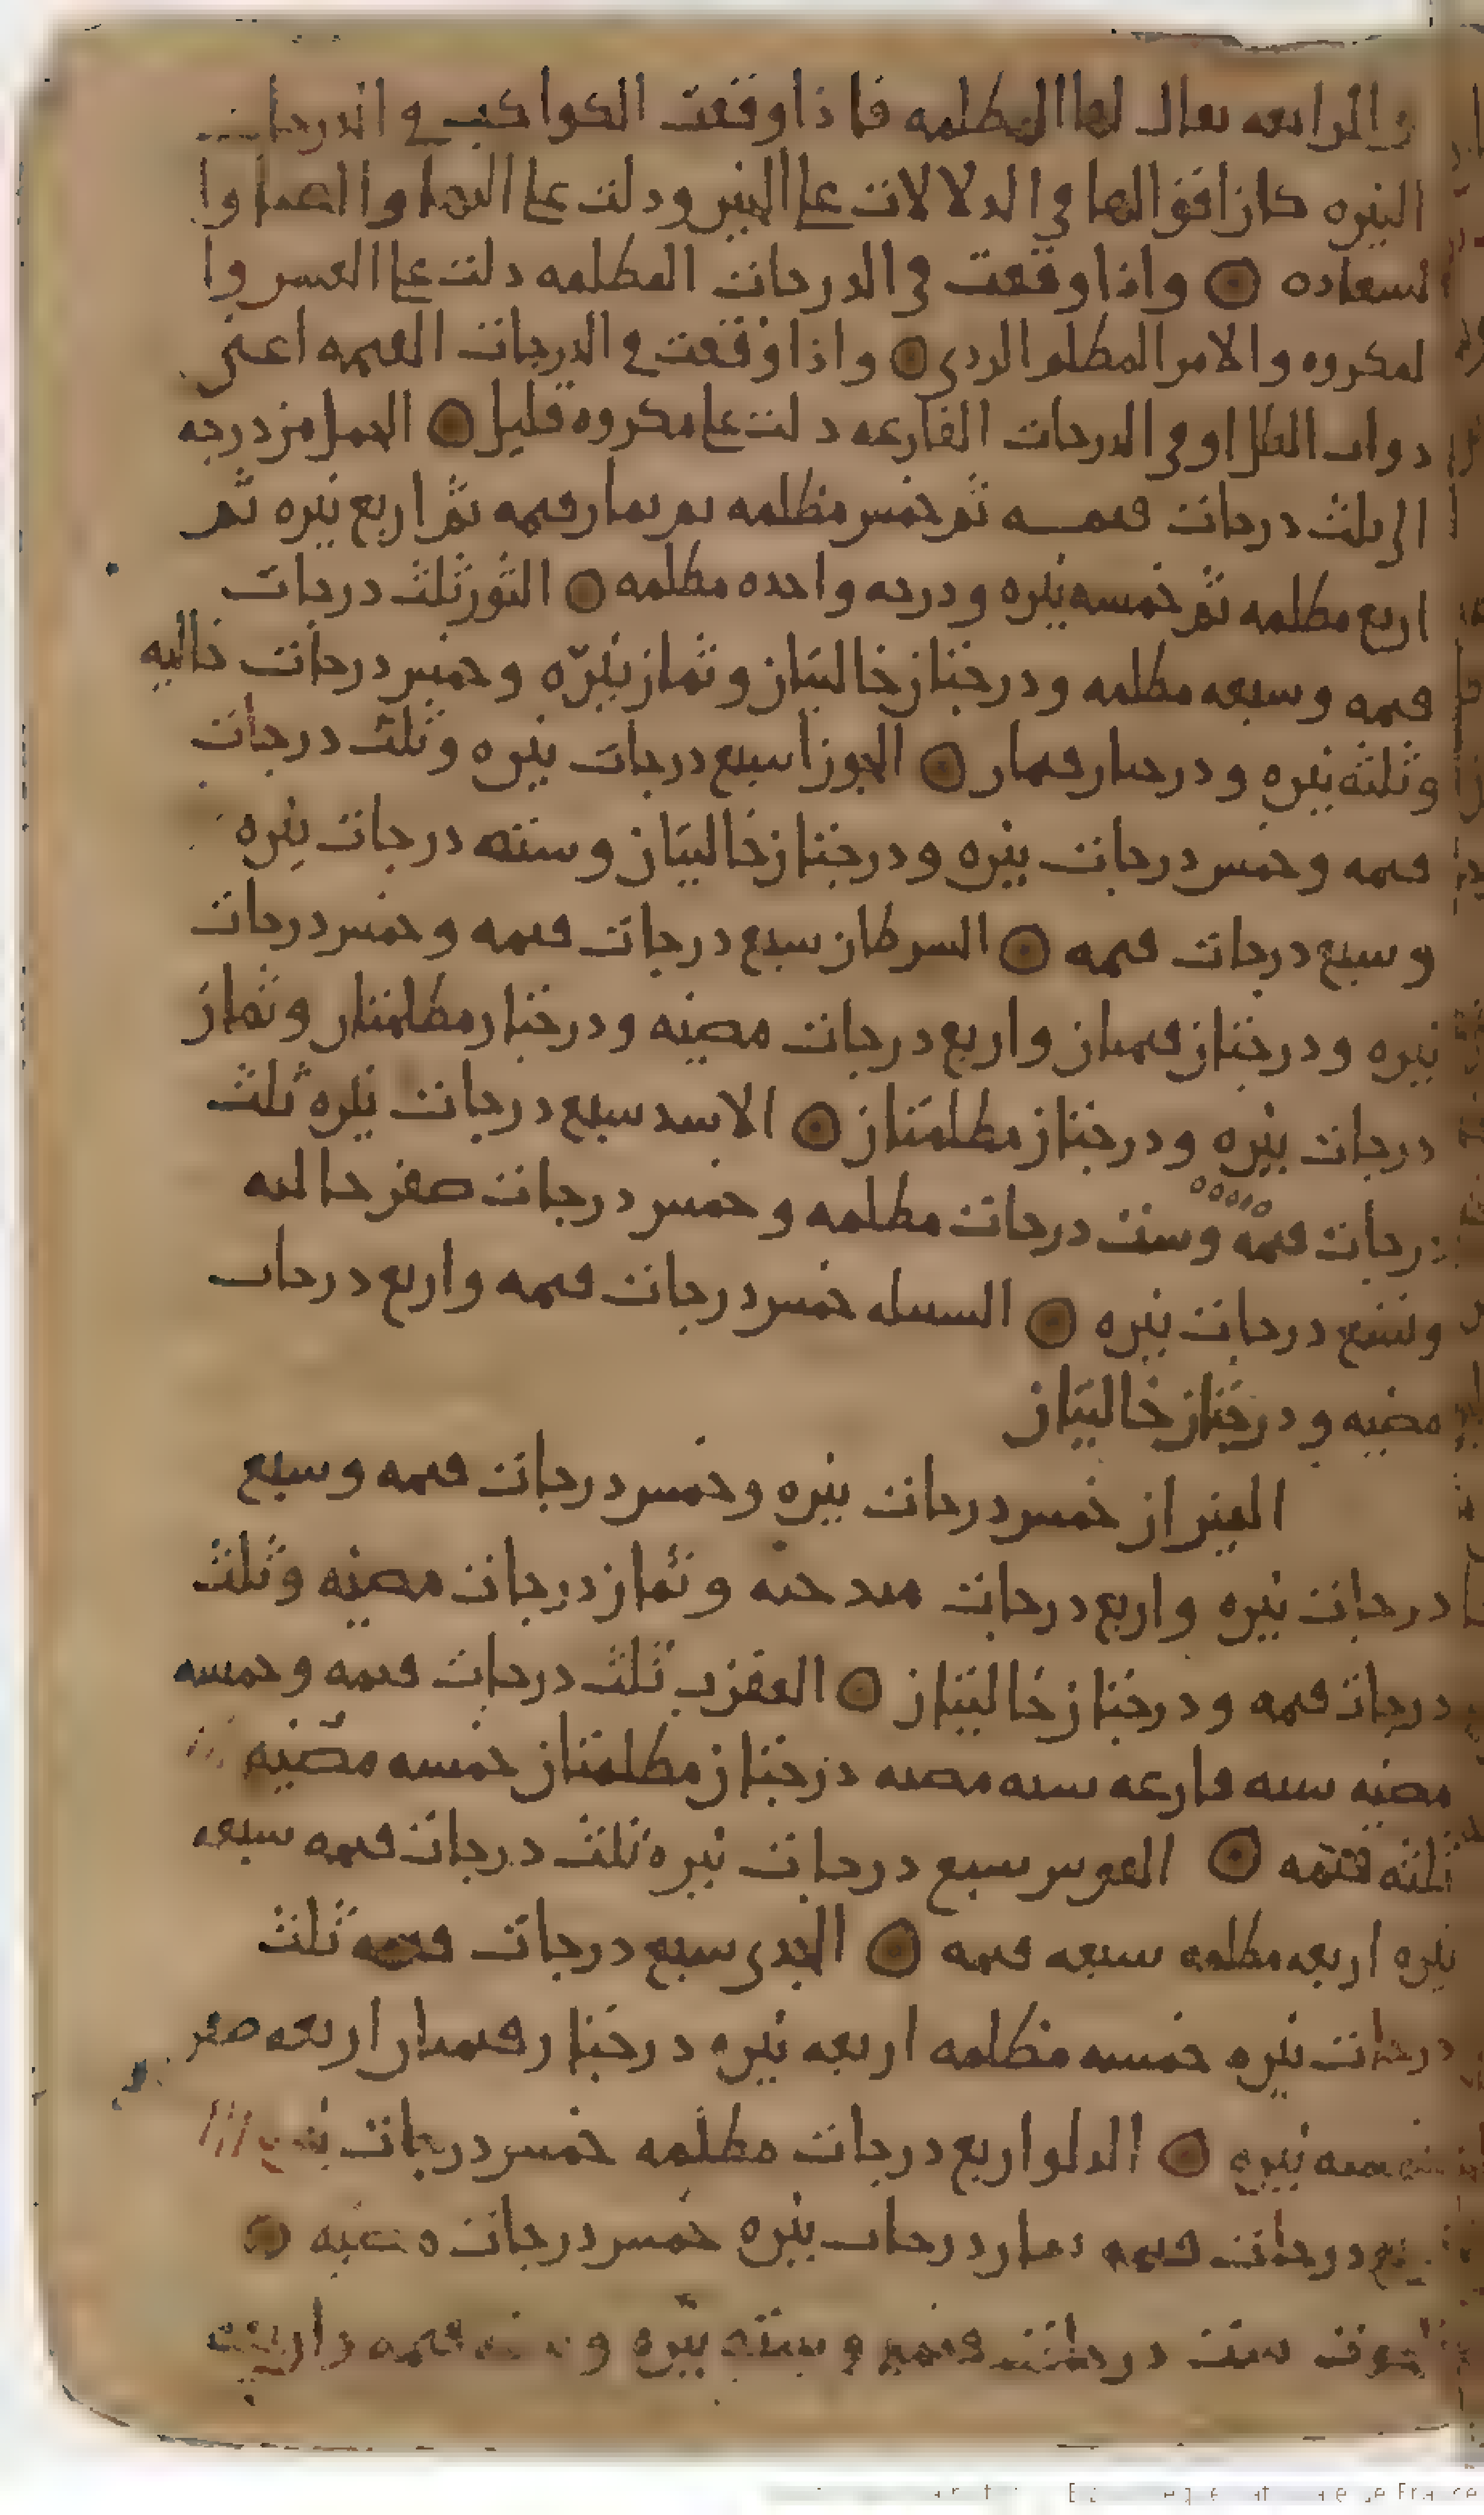 والرابعه يقال لها المظلمه فاذا وقعت الكواكب في الدرجات
النيره كان اقوا لها في الدلالات علي الخير ودلت علي البها والعما وا
لسعاده ۞ واذا وقعت في الدرجات المظلمه دلت علي العسر وا
لمكروه والامر المظلم الردي ۞ واذا وقعت في الدرجات القيمه اعني
دوات الظل او في الدرجات الفارغه دلت علي مكروه قليل ۞ الحمل من درجه
الي ثلث درجات قيمــه ثم خمس مظلمه ثم ثمان قيمه ثم اربع نيره ثم
اربع مظلمه ثم خمسه نيره ودرجه واحده مظلمه ۞ الثور ثلث درجات
قيمه وسبعه مظلمه ودرجتان خاليتان وثمان نيره وخمس درجات خاليه
وثلثه نيره ودرجتان قيمتان ۞ الجوزا سبع درجات نيره وثلث درجات
قيمه وخمس درجات نيره ودرجتان خاليتان وسته درجات نيره
وسبع درجات قيمه ۞ السرطان سبع درجات قيمه وخمس درجات
نيره ودرجتان قيمتان واربع درجات مضيه ودرجتان مظلمتان وثمان
درجات نيره ودرجتان مظلمتان ۞ الاسد سبع درجات نيره ثلث
درجات قيمه وست درجات مظلمه وخمس درجات صفر خاليه
وتسع درجات نيره ۞ السنبله خمس درجات قيمه واربع درجات
مضيه ودرجتان خاليتان
الميزان خمس درجات نيره وخمس درجات قيمه وسبع
درجات نيره واربع درجات وثمان درجات مضيه وثلث
درجات قيمه ودرجتان خاليتان ۞ العقرب ثلث درجات قيمه وخمسه
مضيه سته فارغه سته مضيه درجتان مظلمتان خمسه مضيه
ثلثه قتمه ۞ القوس سبع درجات نيره ثلث درجات قيمه سبعه
نيره اربعه مظلمه سبعه قيمه ۞ الجدي سبع درجات قيمه ثلث
درجات نيره خمسه مظلمه اربعه نيره درجتان قيمتان اربعه صفر
خمسه نيره ۞ الدلو اربع درجات مظلمه خمس درجات
اربع درجات قيمه ثمان درجات نيره خمس درجات ۞
الحوت ست درجات قيمه وسته نيره قيمه